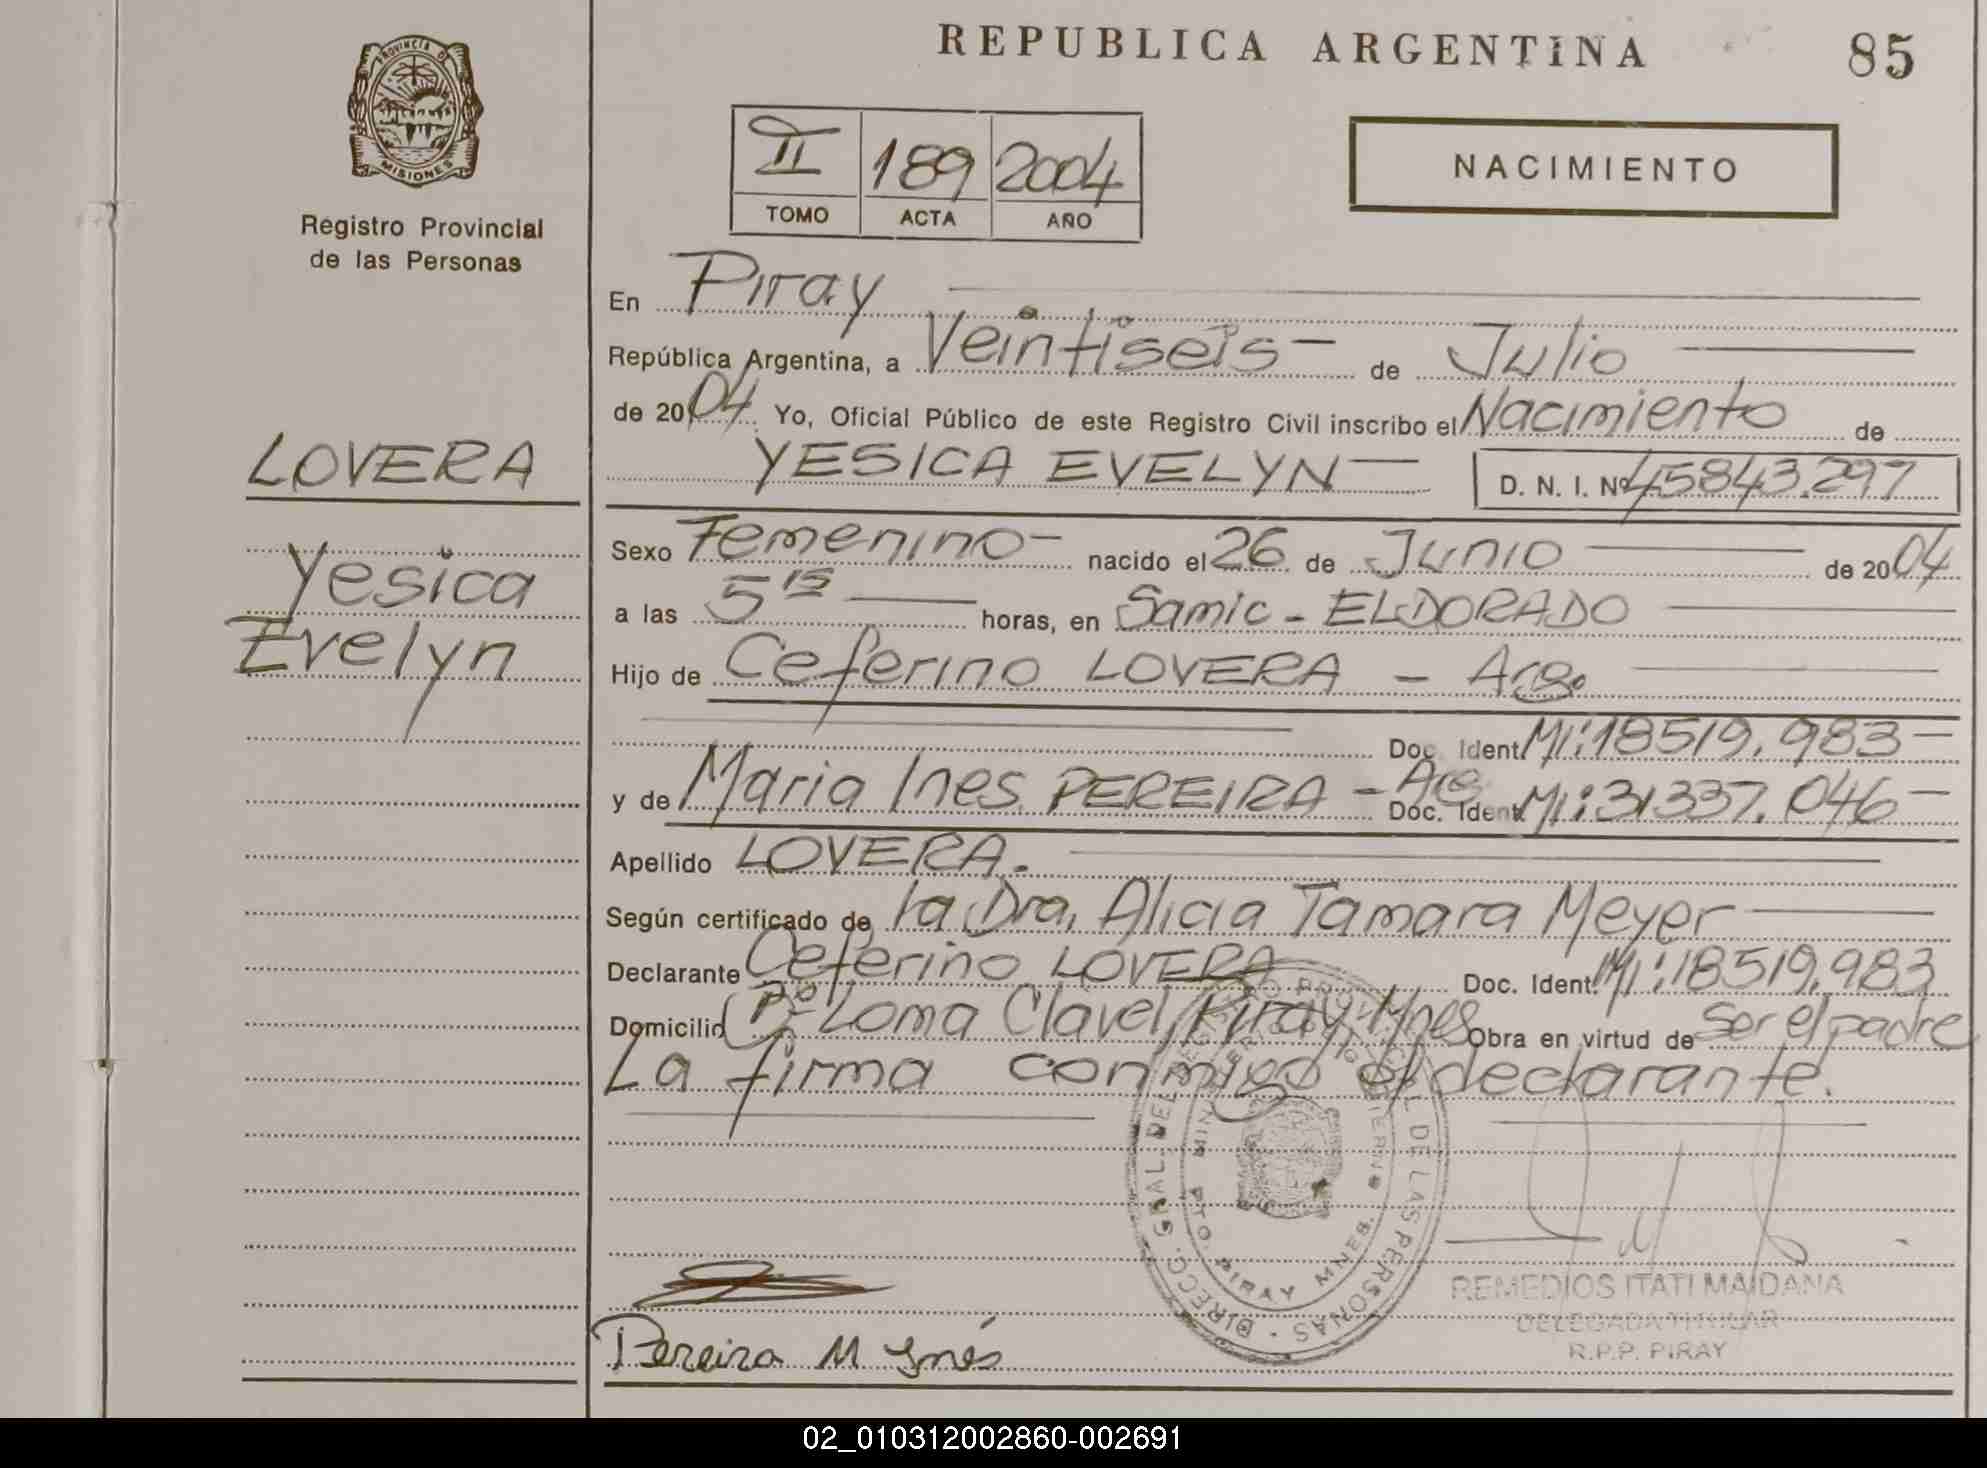 PROVINCIA DE
MISIONES
Registro Provincial
de las Personas
LOVERA
Yesica
Evelyn
REPUBLICA ARGENTINA 85
II 189 2004
TOMO ACTA AÑO
NACIMIENTO
En Piray
República Argentina, a Veintiseis de Julio
de 2004 Yo, Oficial Público de este Registro Civil inscribo el Nacimiento de
YESICA EVELYN D. N. I. Nº 45843.297
Sexo Femenino nacido el 26 de Junio de 2004
a las 5 15 horas, en Samic - ELDORADO
Hijo de Ceferino LOVERA - Arg.
Doc. Ident. MI: 18519.983
y de Maria Ines PEREIRA - Arg Doc. Ident. MI: 31337.046
Apellido LOVERA.
Según certificado de la Dra. Alicia Tamara Meyer
Declarante Ceferino LOVERA Doc. Ident. MI: 18519.983
Domicilio Pº Loma Clavel, Piray, Mnes Obra en virtud de Ser el padre
La firma conmigo el declarante.
DIRECC. GRAL DEL REGISTRO PROVINCIAL DE LAS PERSONAS
PTO. PIRAY MNES.
REMEDIOS ITATI MAIDANA
DELEGADA TITULAR
R.P.P. PIRAY
Pereira M Ynés
02_010312002860-002691